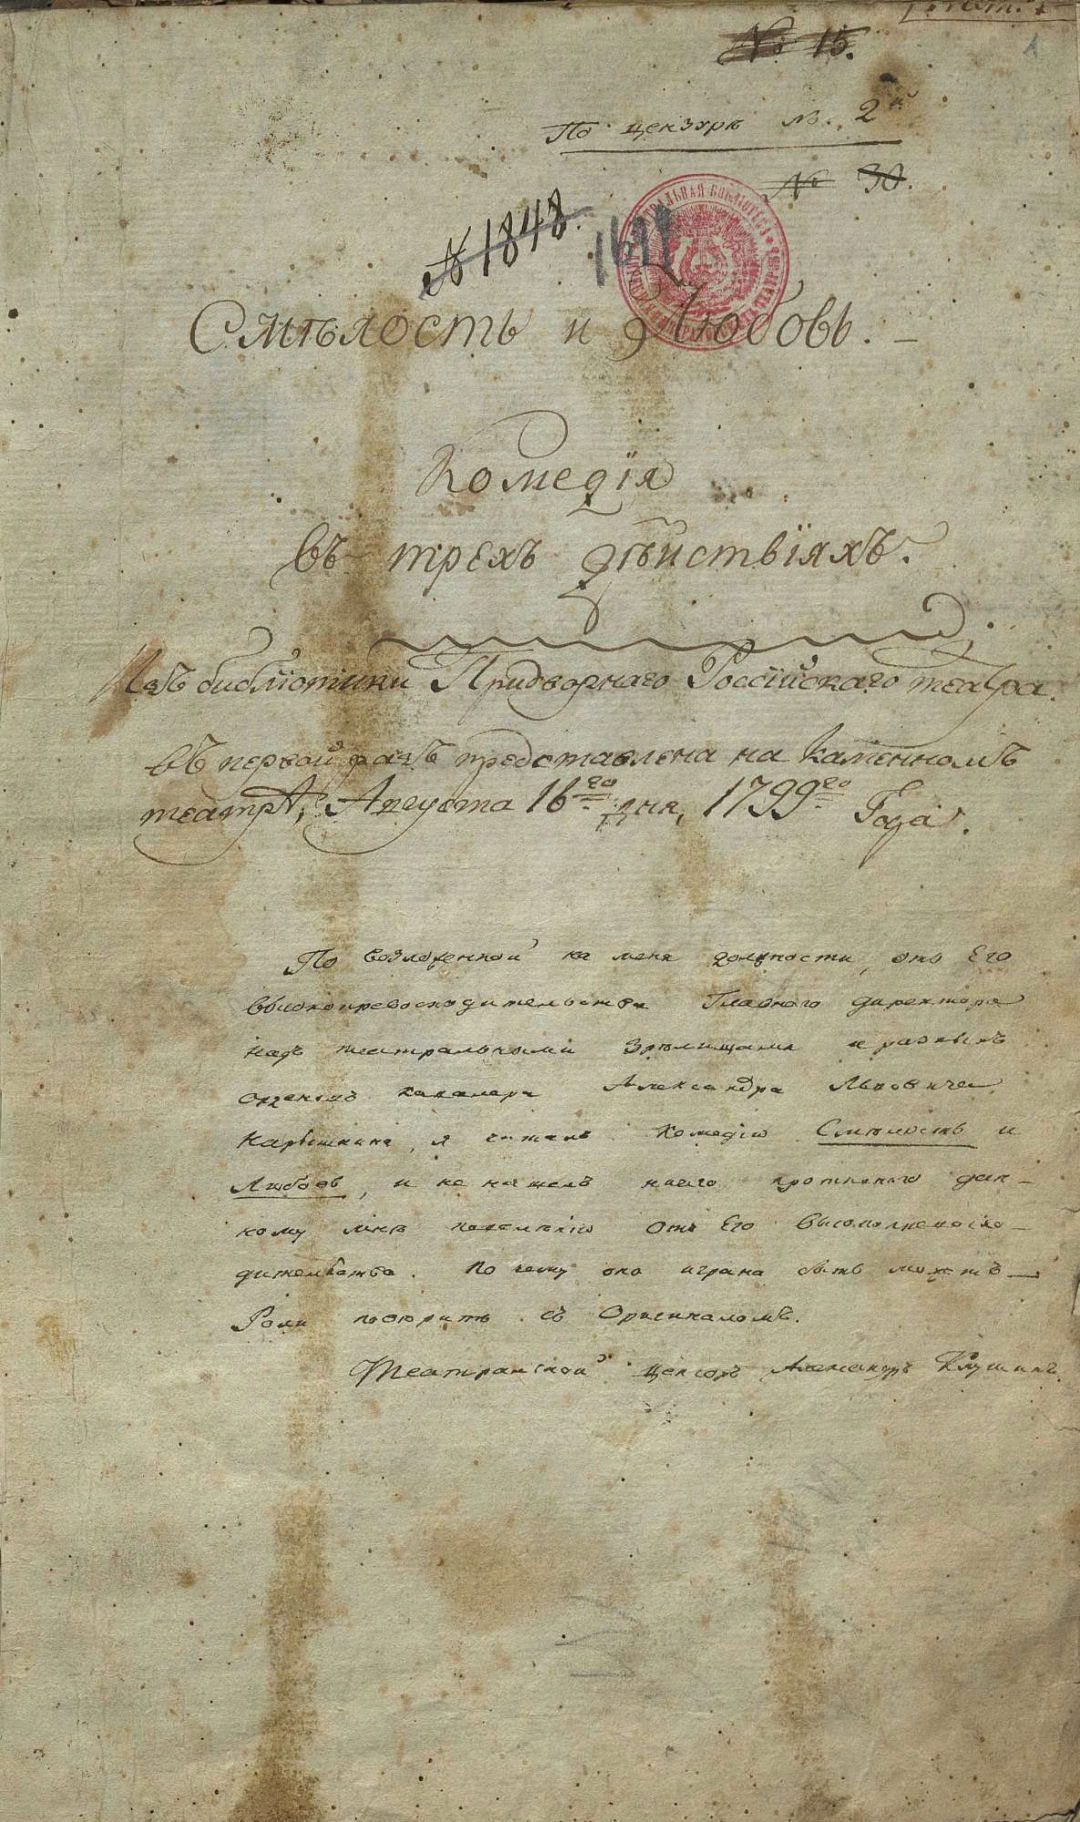 № 15.
1
По цензуре № 2й
№ 30.
№ 1848.
Смѣлость и Любовь. –
Комедія
въ трехъ дѣйствіяхъ.
Изъ библіотики Придворнаго Россійскаго театра.
въ первой разъ представлена на каменномъ
театрѣ, Августа 16го дня, 1799го Года.
По возложенной на меня должности, отъ Его
высокопревосходительства Главного директора
надъ театральными Зрѣлищами и разныхъ
орденовъ кавалера Александра Львовича
Нарышкина, я читалъ Комедію Смѣлость и
Любовь, и не нашелъ ничего противного дан-
ному мнѣ повелѣнію отъ Его Высокопревосхо-
дительства. По чему она играна быть можетъ —
Роли повѣрить съ Оригиналомъ.
Театральной Ценсоръ Александръ Клушинъ.